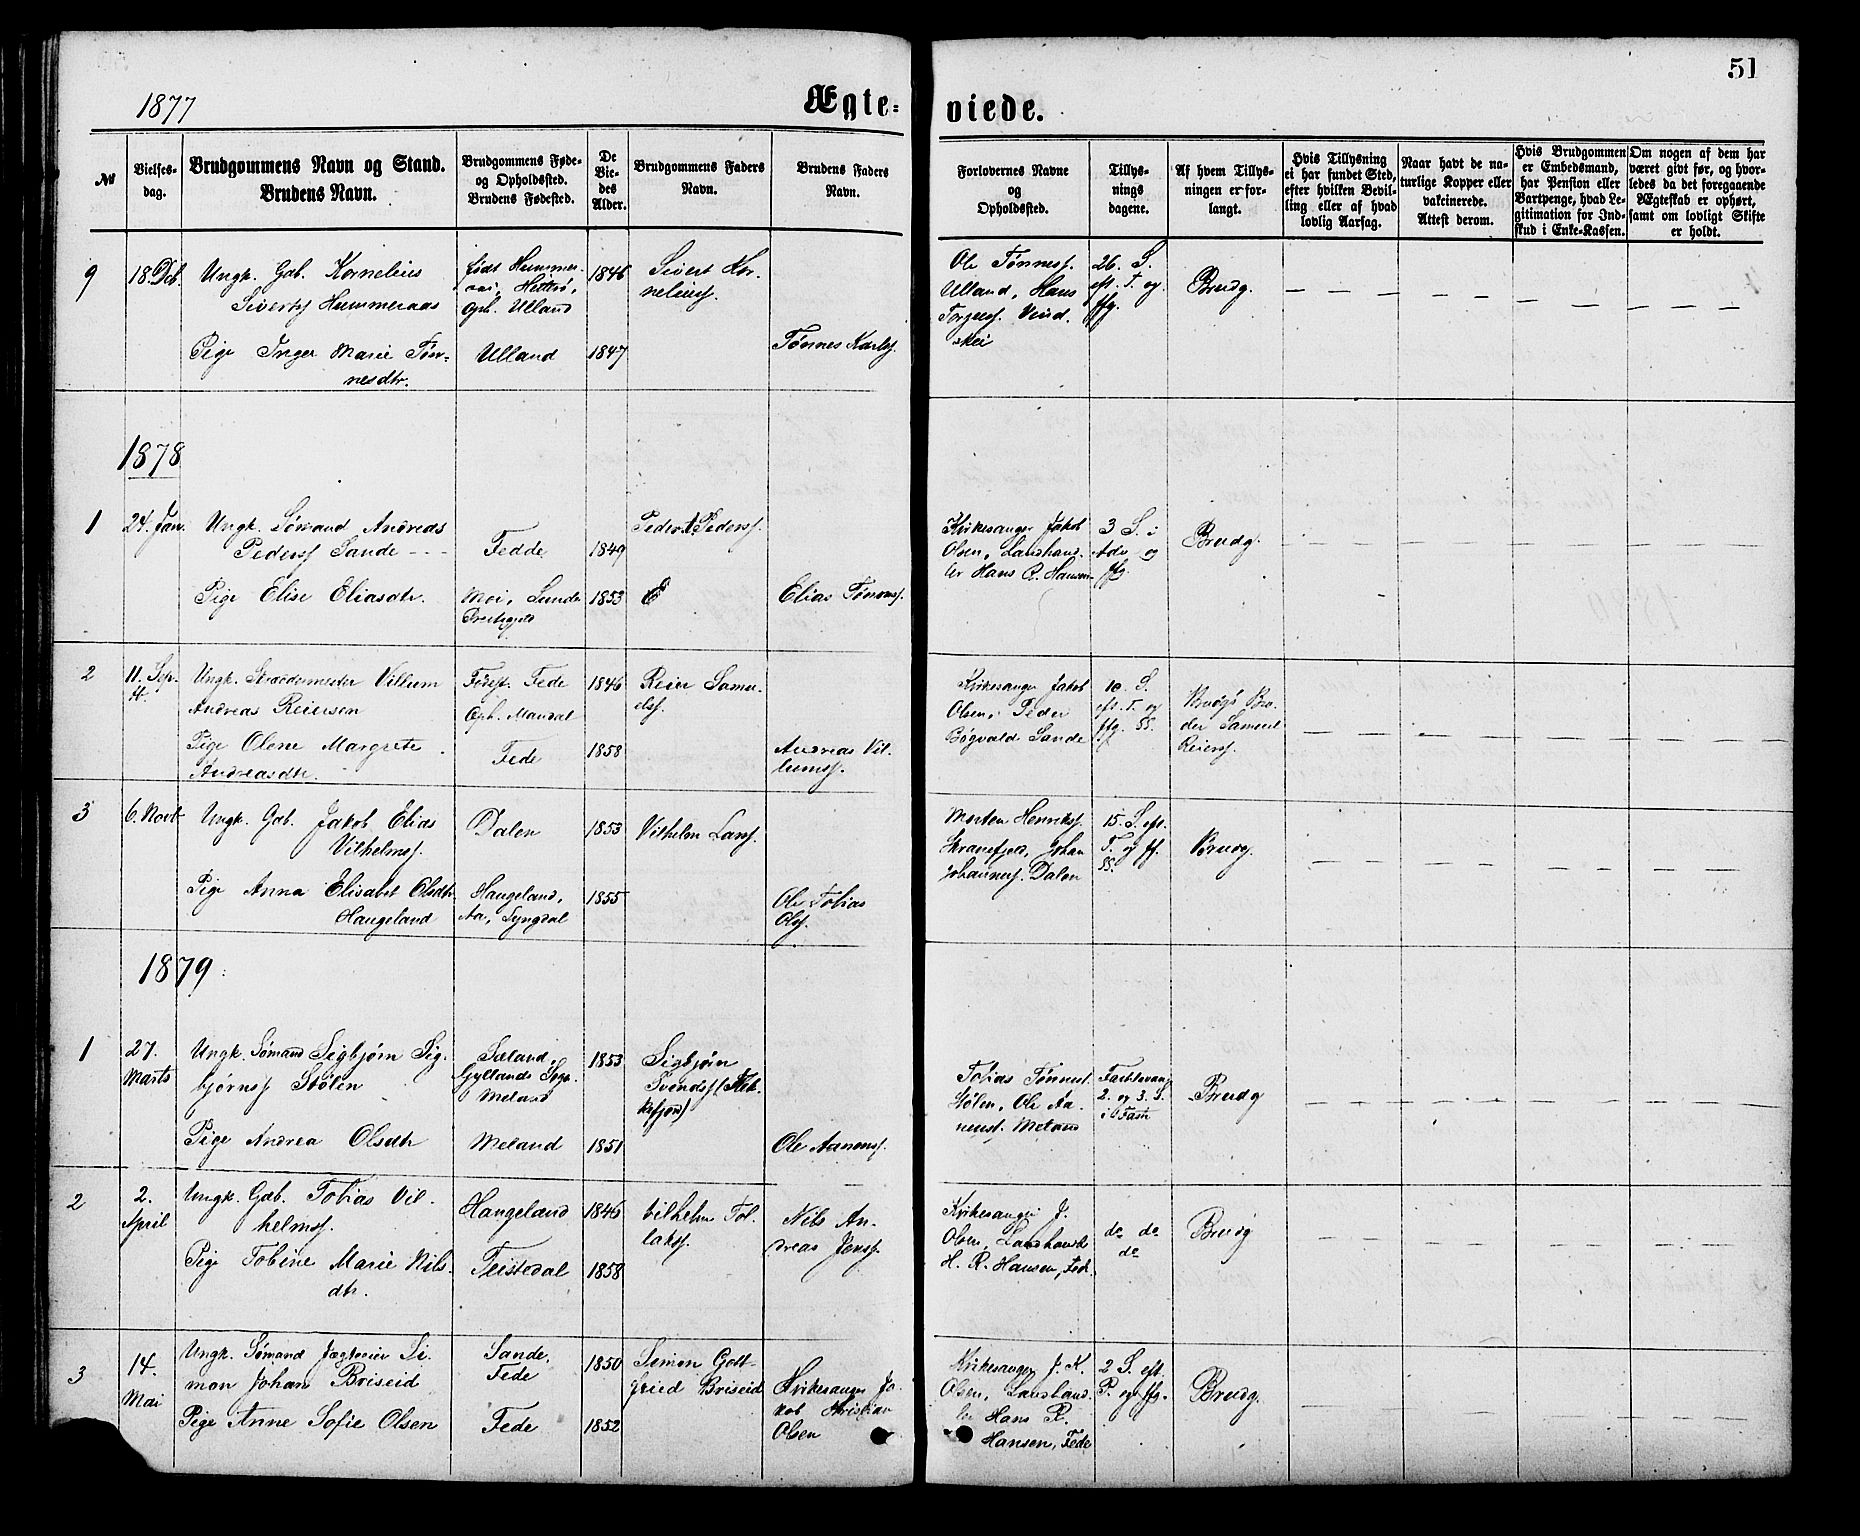 51
1877
Ægte=
viede.
№
Vielses-
dag.
Brudgommens Navn og Stand.
Brudens Navn.
Brudgommens Føde-
og Opholdssted.
Brudens Fødested.
De
Vie-
des
Alder.
Brudgommens Faders
Navn.
Brudens Faders
Navn.
Forlovernes Navne
og
Opholdsted.
Tillys-
nings
dagene.
Af hvem Tillys-
ningen er for-
langt.
Hvis Tillysning
ei har fundet Sted,
efter hvilken Bevil-
ling eller af hvad
lovlig Aarsag.
Naar havt de na-
turlige Kopper eller
vakcinerede.
Attest derom.
Hvis Brudgommen
er Embedsmand,
har Pension eller
Vartpenge, hvad Le-
gitimation for Ind-
skud i Enke-Kassen.
Om nogen af dem har
været givt før, og hvor-
ledes da det foregaaende
Ægteskab er ophørt,
samt om lovligt Skifte
er holdt.
9
18. Deb.
Ungk. Gdb. Kornelius
Sivertsf Hummeraas
født Hummer-
aas, Hitterø,
oph. Ulland
1846
Sivert Kor-
neliusf.
Ole Tønnesf.
Ulland, Hans
Torjusf. Vind-
skei
26. S.
eft. T. og
ffg.
Brudg.
Pige Inger Marie Tøn-
nesdtr.
Ulland
1847
Tønnes Karlsf.
1878
1
24. Jan.
Ungk. Sømand Andreas
Pedersf Sande
Fedde
1849
Peder A. Pedersf.
Kirkesanger Jakob
Olsen, Landhand-
ler Hans R. Hansen
3 S. i
Adv og
ffg.
Brudg.
Pige Elise Eliasdtr.
Moi, Lunde
Præstegjeld
1853
E
Elias Tønnesf.
2
11. Sep-
t.
Ungk. Skrædermester Villum
Andreas Reiersen
Fødest. Fede
Oph. Mandal
1846
Reier Samu-
elsf.
Kirkesanger Jakob
Olsen, Peder
Bøgvald Sande
10. S.
eft. T. og
ffg. SS.
Brdgs Bro-
der Samuel
Reiersf.
Pige Olene Margrete
Andreasdtr.
Fede
1858
Andreas Vil-
lumsf.
3
6. Novb
Ungk. Gdb. Jakob Elias
Vilhelmsf.
Dalen
1853
Vilhelm Larsf.
Morten Henriksf.
Skranefjeld, Johan
Johannesf. Dalen
15. S. eft.
T. og ff.
SS.
Brudg.
Pige Anna Elisabet Olsdtr
Haugeland
Haugeland,
Aa, Lyngdal
1855
Ole Tobias
Olsf.
1879
1
27.
Marts
Ungk. Sømand Sigbjørn Sig-
bjørnsf Stølen
Sæland,
Gyllands Sogn
Meland
1853
Sigbjørn
Svendsf
Tobias Tønnesf.
Stølen, Ole Aa-
nensf. Meland
Fastelavn,
2. og 3. S.
i Faste
Brudg
Pige Andrea Olsdtr
Meland
1851
Ole Aanensf.
2
2.
April
Ungk. Gdb. Tobias Vil-
helmsf.
Haugeland
1846
Vilhelm Tol-
laksf.
Nils An-
dreas Jensf.
Kirkesanger J.
Olsen, Landhandl
H. R. Hansen, Fede
do do
do
Brudg
Pige Tobine Marie Nils-
dtr.
Feistedal
1858
3
14.
Mai
Ungk. Sømand Jægteeier Si-
mon Johan Briseid
Sande,
Fede
1850
Simon Gott-
fried Briseid
Kirkesanger Ja-
kob Kristian
Olsen
Kirkesanger J. K.
Olsen, Landhand-
ler Hans R.
Hansen, Fede
2 S. eft.
P. og ffg.
Brudg.
Pige Anne Sofie Olsen
Fede
1852